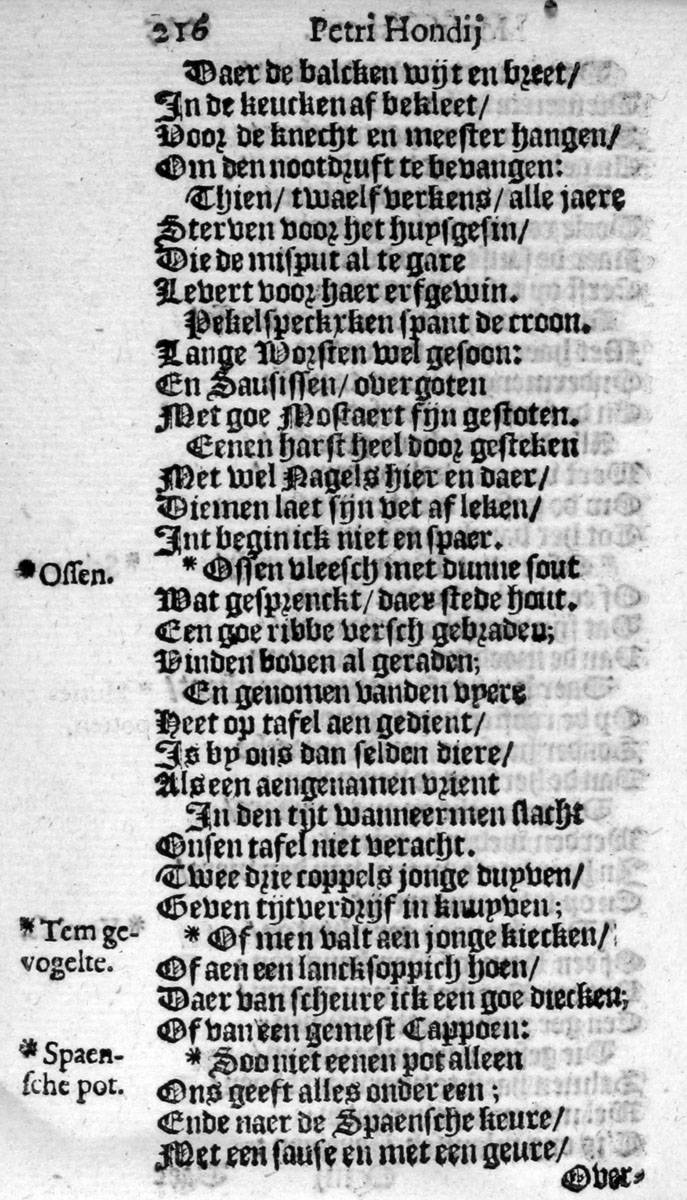 216 Petri Hondij
Daer de balcken wijt en breet/
In de keucken af bekleet/
Voor de knecht en meester hangen/
Om den nootdruft te bevangen:
Thien/ twaelf verkens/ alle jaere
Sterven voor het huysgesin/
Die de misput al te gare
Levert voor haer erfgewin.
Pekelspeckxken spant de croon.
Lange Worsten wel gesoon:
En Sausissen/ overgoten
Met goe Mostaert fijn gestoten.
Eenen harst heel door gesteken
Met wel Nagels hier en daer/
Diemen laet sijn vet af leken/
Int begin ick niet en spaer.
*Ossen. * Ossen vleesch met dunne sout
Wat gesprenckt/ daer stede hout.
Een goe ribbe versch gebraden;
Vinden boven al geraden;
En genomen vanden vyere
Heet op tafel aen gedient/
Is by ons dan selden diere/
Als een aengenamen vrient
In den tijt wanneermen slacht
Onsen tafel niet veracht.
Twee drie coppels jonge duyven/
Geven tijtverdrijf in knuyven;
* Tem ge- * Of men valt aen jonge kiecken/
vogelte. Of aen een lancksoppich hoen/
Daer van scheure ick een goe diecken;
Of van een gemest Cappoen:
* Spaen- * Soo niet eenen pot alleen
sche pot. Ons geeft alles onder een;
Ende naer de Spaensche keure/
Met een sause en met een geure/
Over-